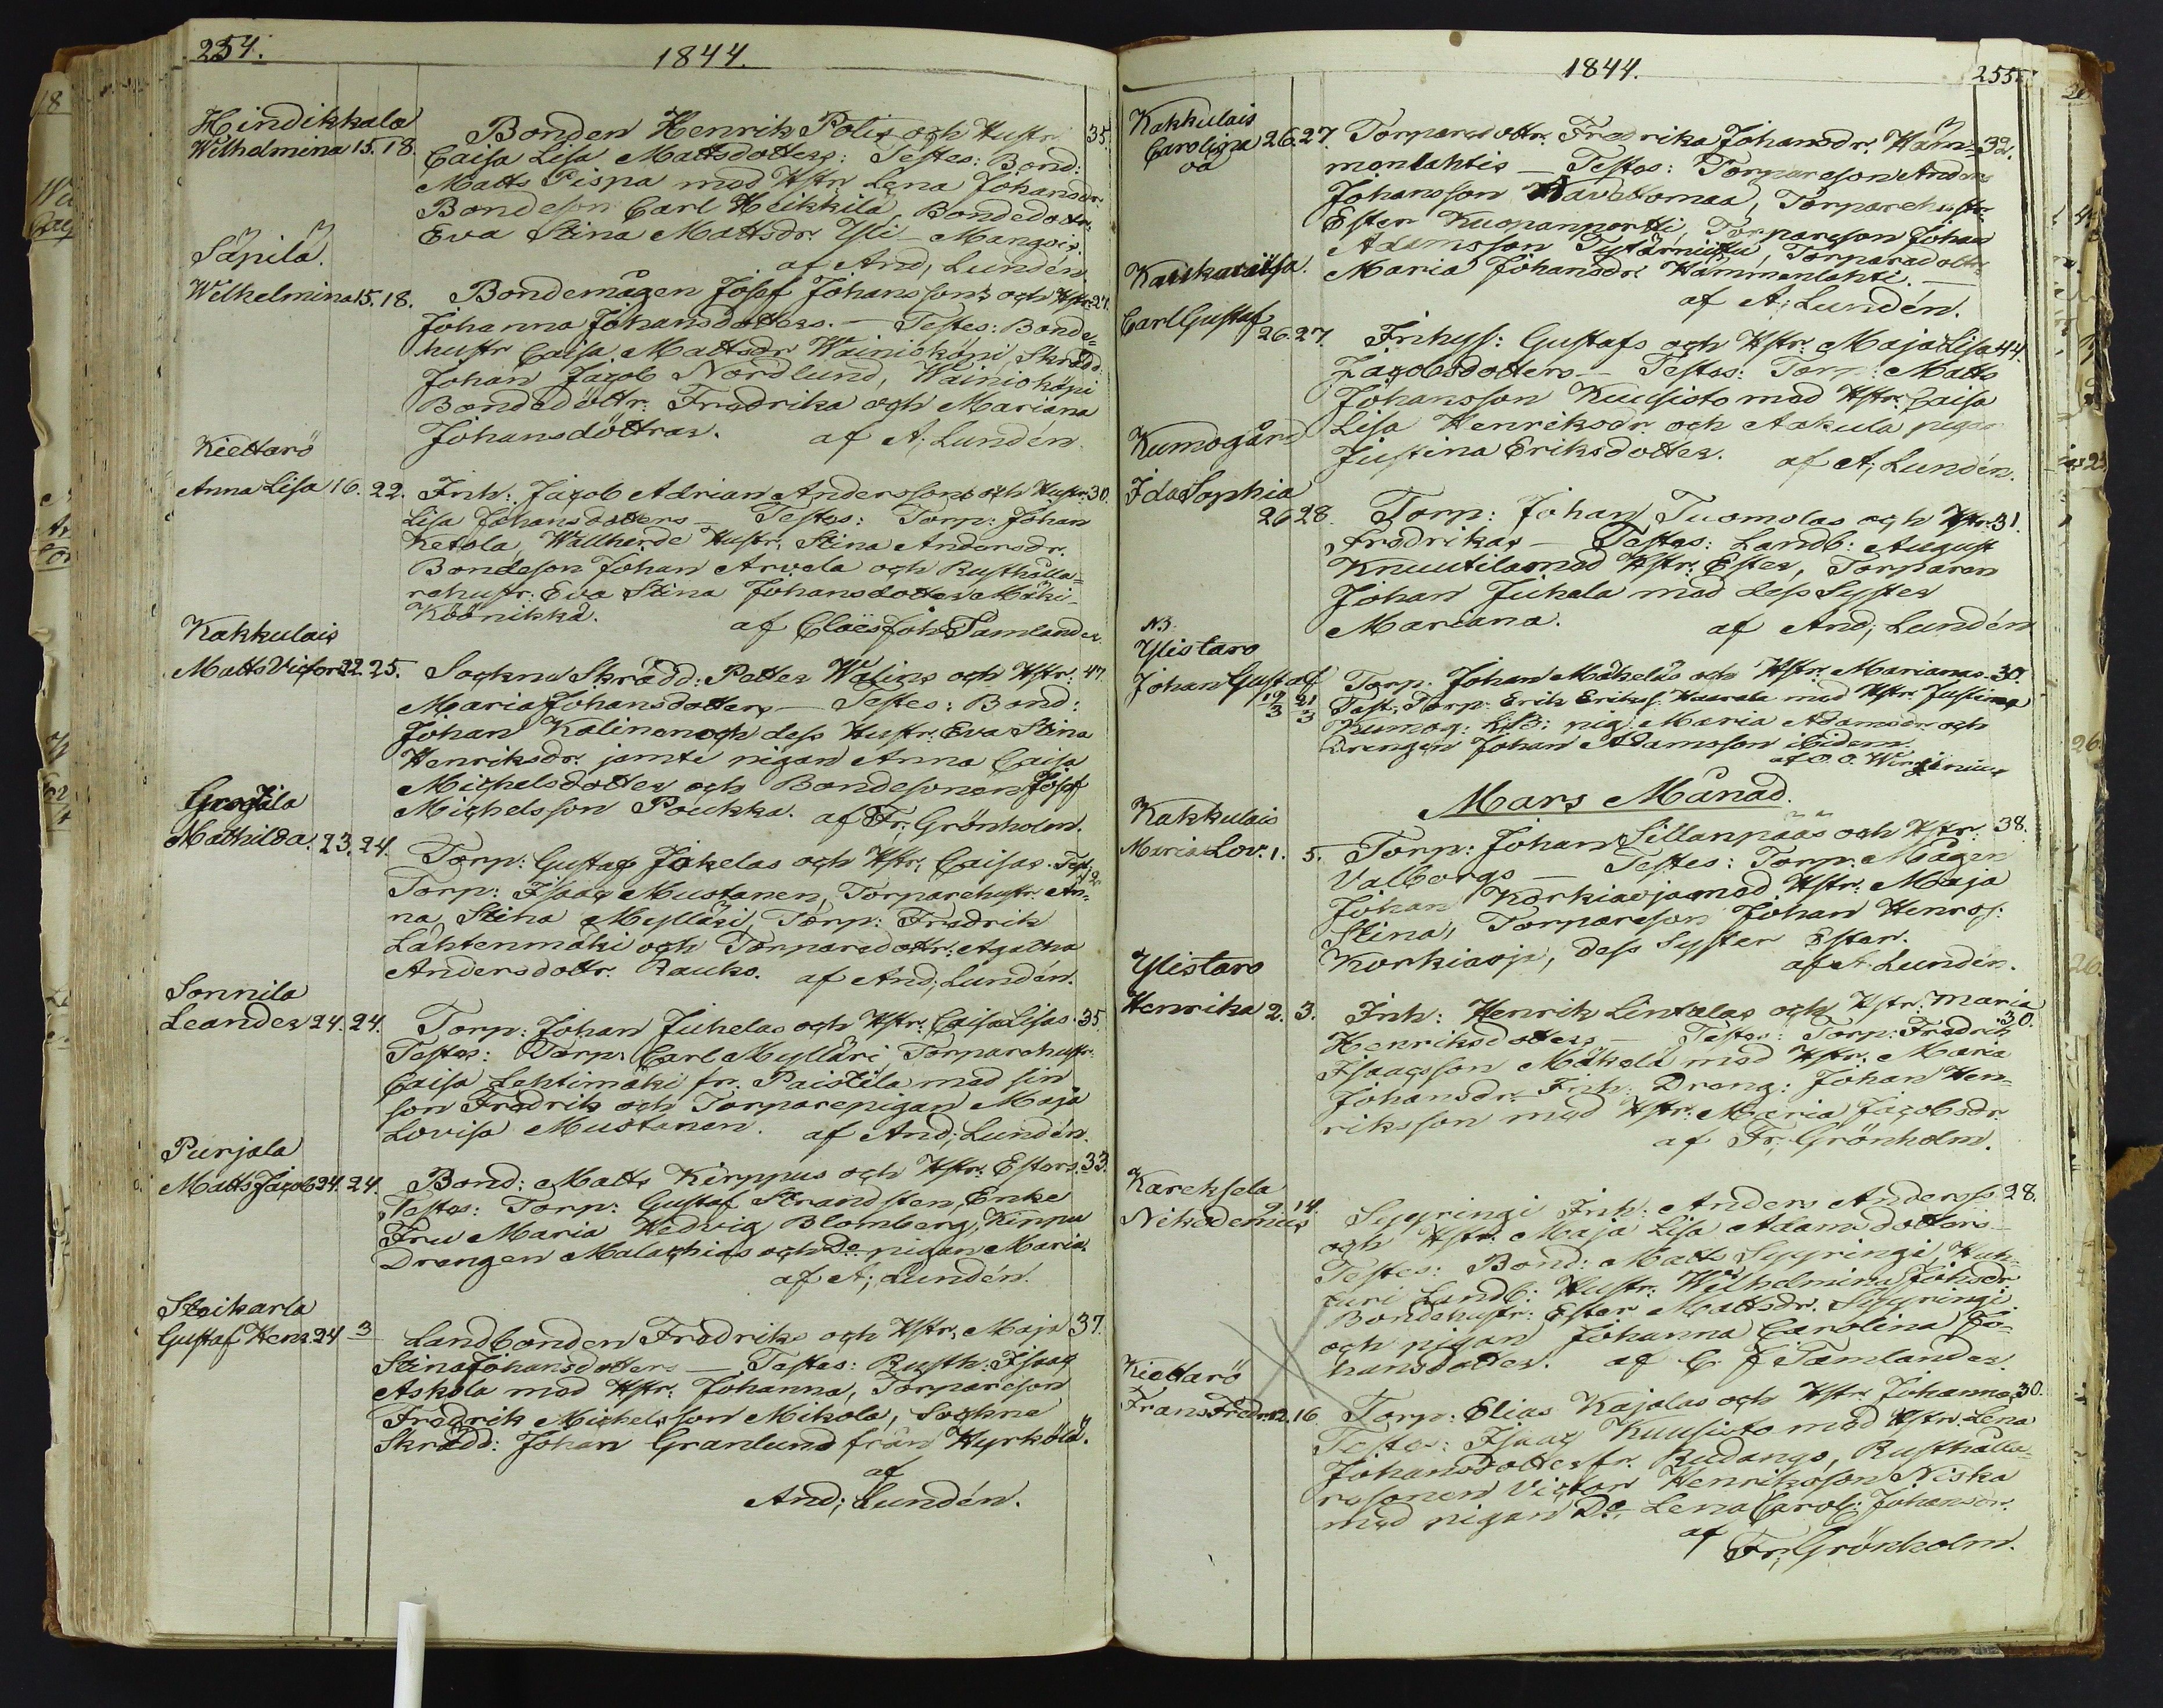 254.
1844.
Hindikkala
Wilhelmina 15. 18.
Bonden Henrik Polis och Hustr 35.
Caisa Lisa Mattsdotters: Testes: Bond:
Matts Pispa med Hstr Lena Johansdr.
Bondeson Carl Heikkilä, Bondedottr.
Eva Stina Mattsdr. Yli-Mangois.
af And, Lundén.
Säpilä.
Wilhelmina 15. 18.
Bondemågen Josef Johanssons och Hstr 27.
Johanna Johansdotters. — Testes: Bonde=
hustr Caisa Mattsdr Wäiniököni, Skrädd:
Johan Jacob Nordlund, Wainioköni
Bondedöttr: Fredrika och Mariana
Johansdöttrar. af A; Lundén.
Kiettarö
Anna Lisa 16. 22.
Inh: Jacob Adrian Anderssons och Hustr. 30.
Lisa Johansdotters — Testes: Torp: Johan
Ketola, Wallherde Hustr. Stina Andersdr.
Bondeson Johan Arvela och Rusthålla=
rehustr. Eva Stina Johansdotter Mäki-
Köönikkä. af Claes Joh Tamlander.
Kakkulais
Matts Victor 22. 25.
Sockne Skrädd: Petter Walins och Hstr. 47
Maria Johansdotters — Testes: Bond:
Johan Kalinen och dess Hustr. Eva Stina
Henriksdr. jemte pigan Anna Caisa
Michelsdotter och Bondesonen Josef
Michelsson Poukka. af Fr. Grönholm.
Mathilda. 23. 24.
Torp: Gustaf Jokelas och Hstr. Caisas. Test
Torp: Isaac Mustanen, Torparehustr. An=
na Stina Mylläri, Torp: Fredrik
Lähtenmäki och Torparedottr. Agatha
Andersdottr. Rauko. af And; Lundén.
Sonnila
Leander 24. 24.
Torp: Johan Juhelas och Hstr. Caisa Lisas. 35.
Testes: Torp: Carl Mylläri Torparehustr.
Caisa Lehtimäki fr. Paistila med sin
son Fredrik och Torparepigan Maja
Lovisa Mustanen. af And; Lundén.
Purjala
Matts Jacob 24. 24.
Bond: Matts Kirppus och Hstr. Esters. 33.
Testes: Torp: Gustaf Strandsten, Enke
Fru Maria Hedvig Blomberg, Kirppu
Drengen Malachias och Do pigan Maria.
af A; Lundén.
Stoikarla
Gustaf Henr. 24 3
Landbonden Fredriks och Hstr. Maja 37.
Stina Johansdotters — Testes: Rusth: Isaac
Askola med Hstr. Johanna, Torpareson
Fredrik Michelsson Mikola, Sockne
Skrädd: Johan Granlund från Hyrkölä.
af
And; Lundén.
1844.
255.
Kakkulais
Carolina 26. 27.
oä
Torparedottr. Fredrika Johansdr. Häm= 32.
menlahtis — Testes: Torpareson Anders
Johansson Havettomaa, Torparehustr.
Ester Kuopanportti, Torpareson Johan
Adamsson Tytärniittu, Torparedottr
Maria Johansdr. Hämmenlahti. —
af A; Lundén.
Kaukaritsa.
Carl Gustaf
26. 27.
Inhys: Gustafs och Hstr. Maja Lisa 44.
Jacobsdotters — Testes: Torp: Matts
Johansson Kuusisto med Hstr. Caisa
Lisa Henriksdr. och Aakula pigan
Justina Eriksdotter. af A; Lundén.
Kumogård
Ida Sophia
26 28.
Torp: Johan Tuomolas och Hstr. 31.
Fredrikas — Testes: Landb: August
Knuutila med Hstr. Ester, Torparen
Johan Juhala med dess Syster
Mariana. af And; Lundén
NB.
Ylistaro
Johan Gustaf
19/3 21/3
Torp. Johan Mäkeläs och Hstr. Marianas. 30.
Test, Torp. Erik Erikss. Haarala med Hstr. Justina
Kumog: KB: pig. Maria Adamsdr. och
Drengen Johan Adamsson ibidem.
af O. O. Wirzenius
Mars Månad.
Kakkulais
Maria Lov. 1. 5.
Torp: Johan Sillanpääs och Hstr. 38.
Valborgs — Testes: Torp. Mågen
Johan Korkiaoja med Hstr. Maja
Stina, Torpareson Johan Henrss:
Korkiaoja, dess Syster Ester.
af A. Lundén.
Ylistaro
Henrika 2. 3.
Inh: Henrik Lintalas och Hstr. Maria
30.
Henriksdotters — Testes: Torp: Fredrik
Isaacsson Mäkelä med Hstr. Maria
Johansdr. Inh. Dreng: Johan Hen=
riksson med Hstr. Maria Jacobsdr
af Fr; Grönholm.
Kareksela
Nikodemus 9. 14.
Syyringi Inh: Anders Anderss 28.
och Hstr. Maja Lisa Adamsdotters —
Testes: Bond: Matts Syyringi, Huh=
turi Landb: Hustr. Wilhelmina Johsdr
Bondehustr: Ester Mattsdr. Syyringi
och pigan Johanna Carolina Jo=
hansdotter. af C. J Tamlander.
Kiettarö
Frans Fredr. 12. 16
Torp: Elias Kajalas och Hstr Johannas 30.
Testes: Isaac Kuusisto med Hstr. Lena
Johansdotter fr. Rudango, Rusthålla=
resonen Victor Henriksson Niska
med pigan Do. Lena Carol: Johansdr.
af
Fr; Grönholm.